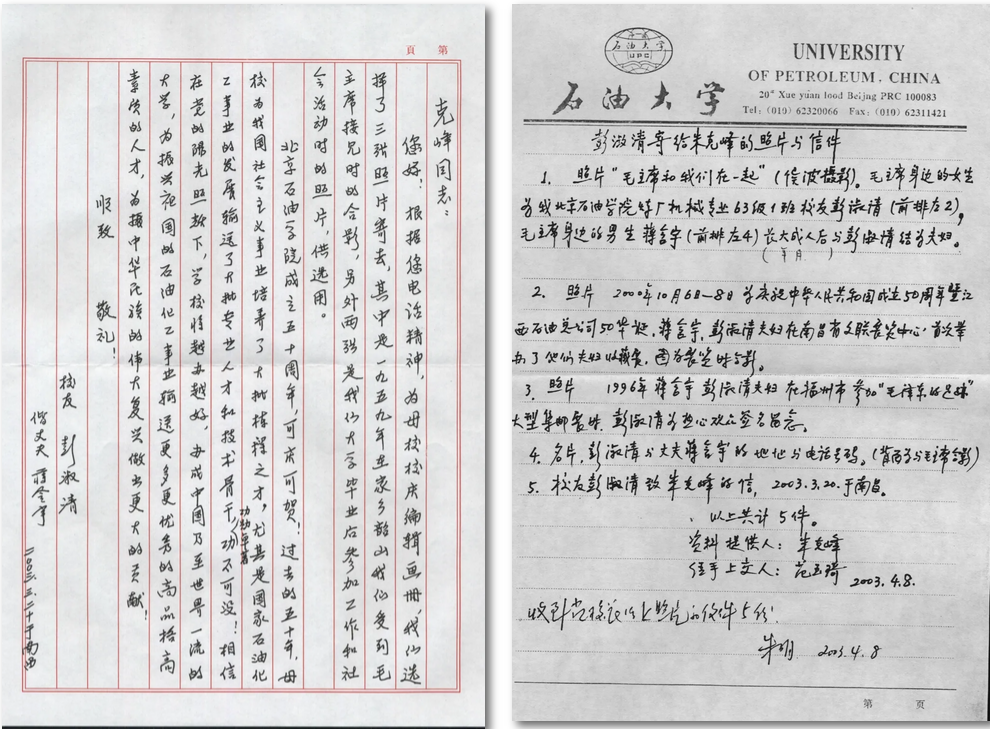 第 頁
克峰同志：
您好！根据您电话精神，为母校校庆编辑画册，我仙选
择了三张照片寄去，其中是一九五九年在家乡韶山我仙受到毛
主席接见时的合影，另外两张是我仙大学毕业后参加工作和社
会活动时的照片，供选用。
北京石油学院成立五十周年，可庆可贺！过去的五十年，母
校为我国社会主义事业培养了大批栋梁之才，尤其是国家石油化
工事业的发展输送了大批专业人才和技术骨干，功劳卓著，功不可没！相信
在党的阳光照耀下，学校将越办越好，办成中国乃至世界一流的
大学，为振兴祖国的石油化工事业输送更多更优秀的高品格高
素质的人才，为振中华民族的伟大复兴做出更大的贡献！
顺致
敬礼！
校友 彭淑清
偕丈夫 蒋含宇
二〇〇三.三.二十于南昌
石油大学
UPC
UNIVERSITY
OF PETROLEUM, CHINA
石油大学
20# Xue yuan lood Beijng PRC 100083
Tel: (010) 62320066 Fax: (010) 62311421
彭淑清寄给朱克峰的照片与信件
1. 照片"毛主席和我们在一起"(侯波摄影)。毛主席身边的女生
为我北京石油学院炼厂机械专业63级1班校友彭淑清(前排左2)，
毛主席身边的男生蒋含宇(前排左4)长大成人后与彭淑清结为夫妇。
( 年 月 )
2. 照片 2000年10月6日—8日为庆祝中华人民共和国成立50周年暨江
西石油总公司50华诞，蒋含宇、彭淑清夫妇在南昌省文联展览中心首次举
办了他们夫妇收藏展，图为展览时合影。
3. 照片 1996年蒋含宇彭淑清夫妇在福州市参加"毛泽东的足迹"
大型集邮展时，彭淑清为热心观众签名留念。
4. 名片，彭淑清与丈夫蒋含宇的地址与电话号码。(背面为与毛主席合影)
5. 校友彭淑清致朱克峰的信，2003.3.20.于南昌。
以上共计5件。
资料提供人：朱克峰
经手上交人：范玉琦
2003.4.8.
收到以上照片和信件5份！
朱明 2003.4.8
第 页